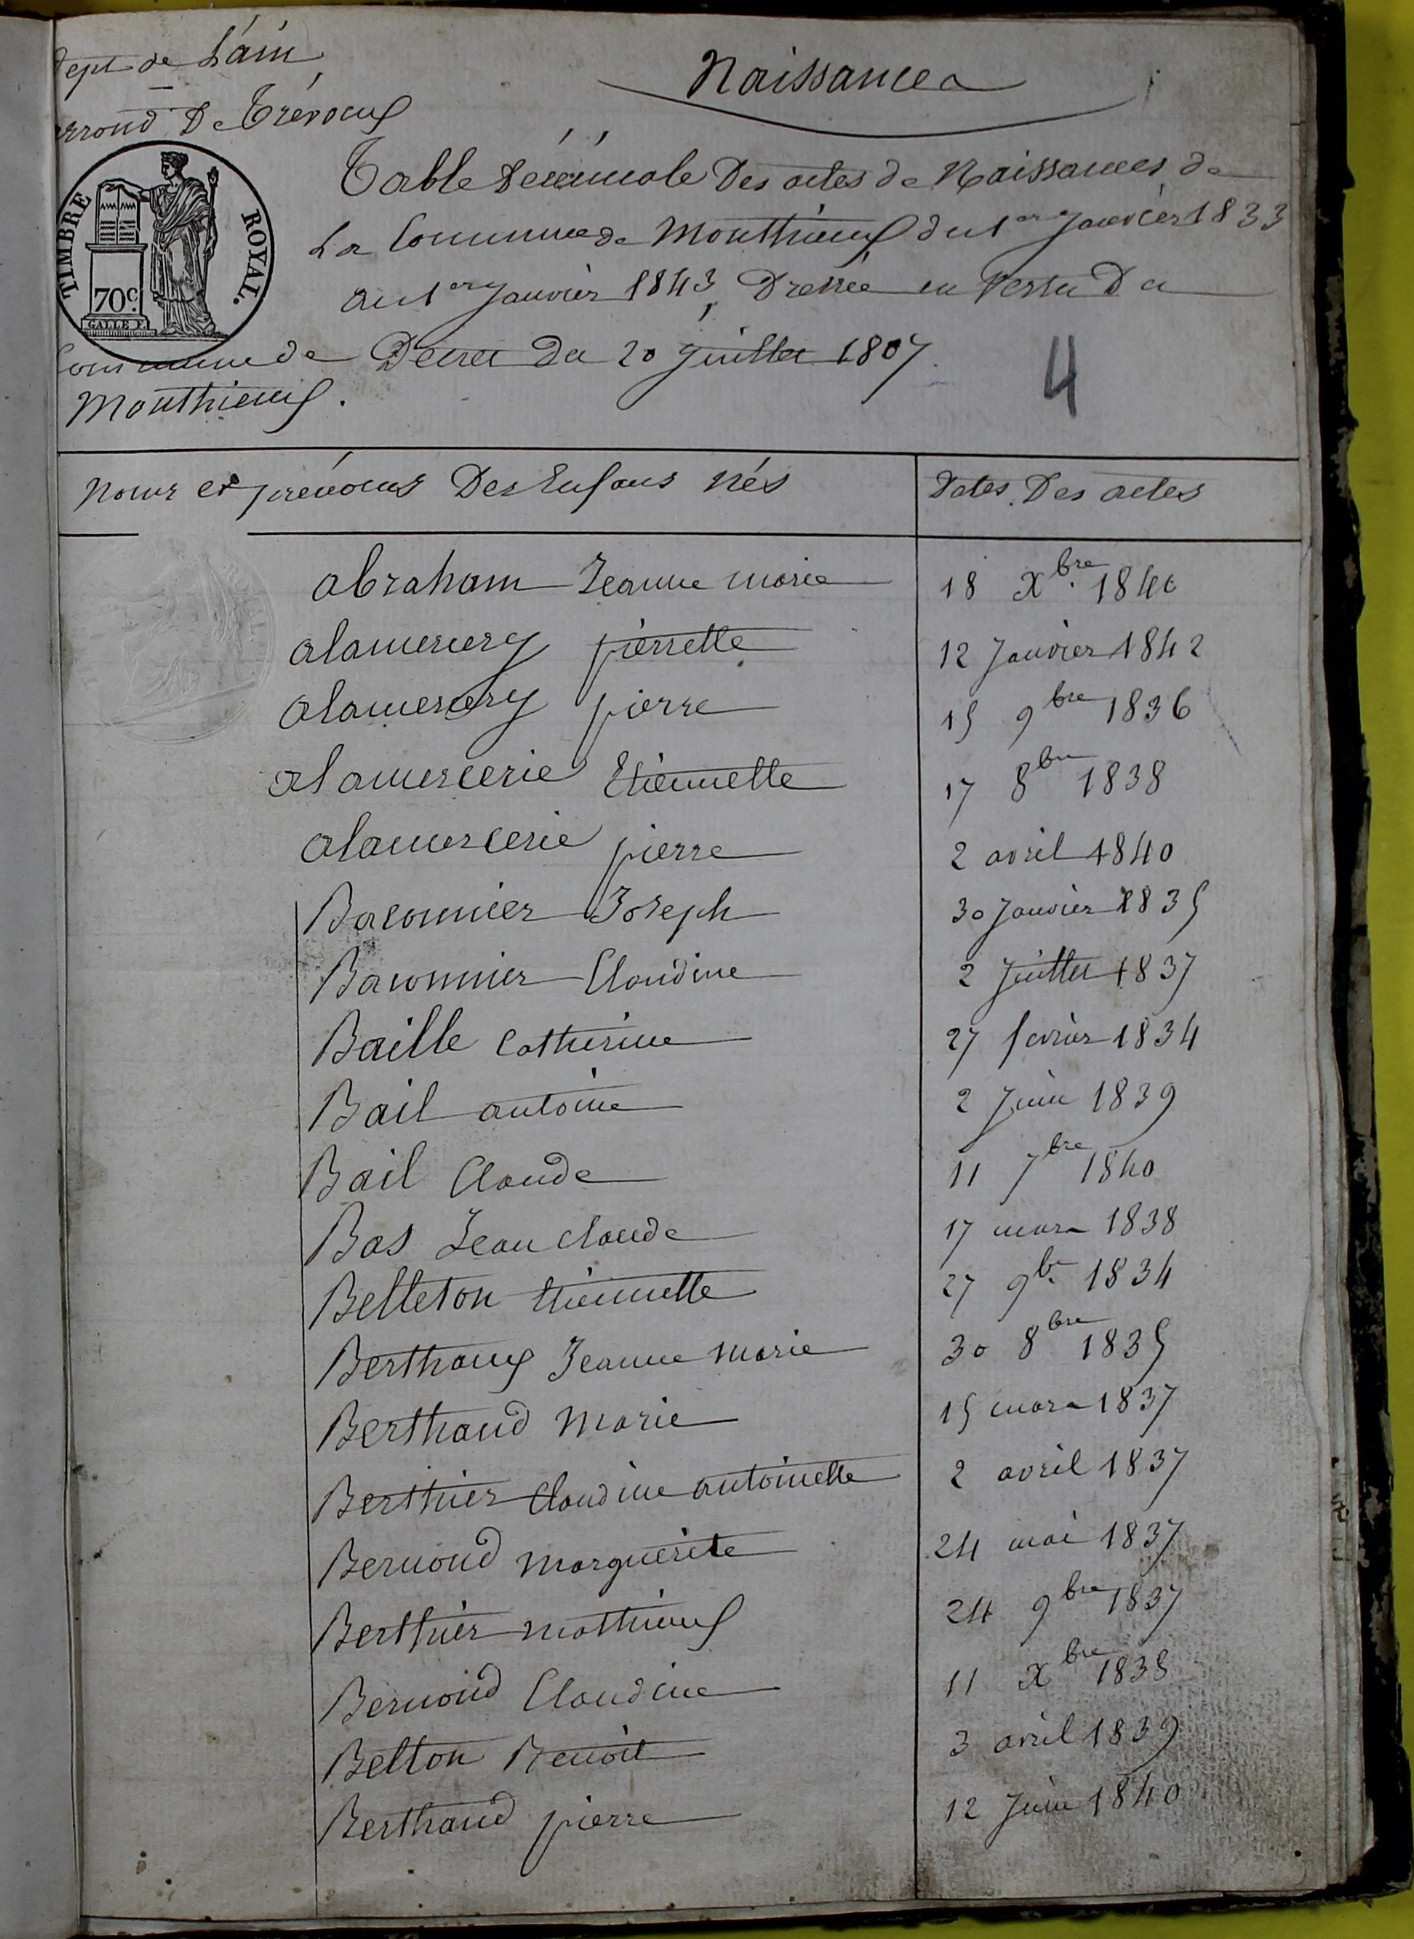 Dept de L'ain
Naissances
arrond De Trévoux
Table Décénnale Des actes de Naissances de
La Commune de Monthieux du 1er Janvier 1833
au 1er Janvier 1843, Dressée en Vertu Du
Commune de
Décret Du 20 Juillet 1807
Monthieux.
4
TIMBRE ROYAL.
70c.
Noms et prénoms Des Enfans Nés
Dates Des actes
abraham Jeanne marie 18 Xbre 1840
alamercery pierrette 12 Janvier 1842
alamercery pierre 15 9bre 1836
alamercerie Etiennette 17 8bre 1838
alamercerie pierre 2 avril 1840
Baconnier Joseph 30 Janvier 1835
Baconnier Claudine 2 Juillet 1837
Baille Catherine 27 fevrier 1834
Bail antoine 2 Juin 1839
Bail Claude 11 7bre 1840
Bas Jean claude 17 mars 1838
Belleton Etiennette 27 9b. 1834
Berthoux Jeanne marie 30 8bre 1835
Berthaud Marie 15 mars 1837
Berthier Claudine antoinette 2 avril 1837
Bernond Marguerite 24 mai 1837
Berthier mathieux 24 9bre 1837
Bernond Claudine 11 Xbre 1838
Belton Benoit 3 avril 1839
Berthaud pierre 12 Juin 1840